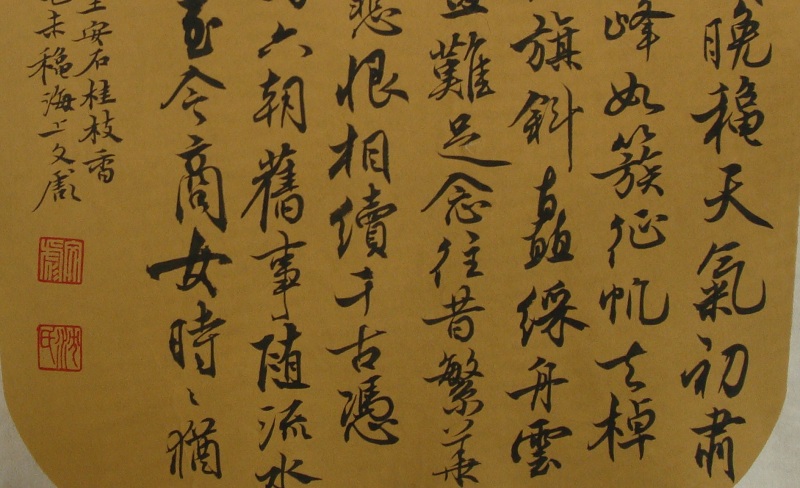 晚穐天氣初肅
峰如簇征帆去棹
旗斜矗綵舟雲
難足念往昔繁華
悲恨相續千古憑
六朝舊事随流水
至今商女時〻猶
王安石桂枝香
未穐海上文